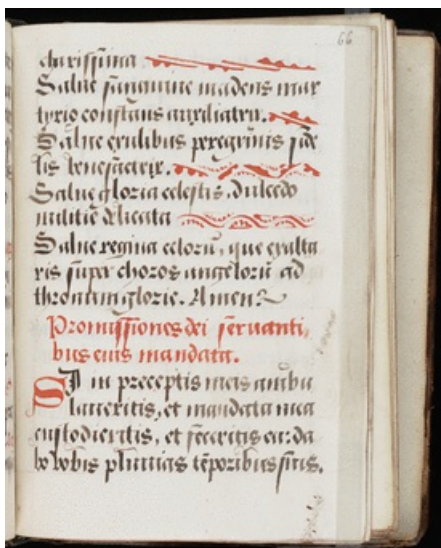 66
charissima
Salue sanguine madens mar
tyrio constans auxiliatrix.
Salue exulibus peregrinis fide
lis benefactrix.
Salue gloria celestis, dulcedo
militiē delicata
Salue regina celorū, que exalta
ris super choros angelorū ad
thronum glorie. Amen
Promissiones dei seruanti,
bus eius mandata.
SI in preceptis meis ambu
laueritis, et mandata mea
custodieritis, et feceritis ea: da
bo vobis pluuias tēporibus suis.